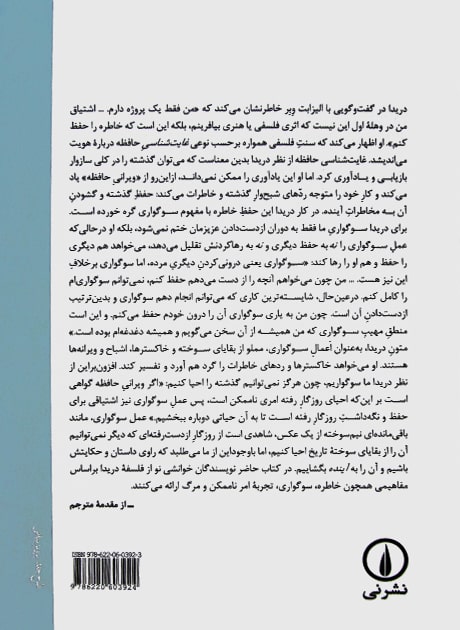 دریدا در گفت‌وگویی با الیزابت وبر خاطرنشان می‌کند که «من فقط یک پروژه دارم. ... اشتیاق
من در وهلهٔ اول این نیست که اثری فلسفی یا هنری بیافرینم، بلکه این است که خاطره را حفظ
کنم». او اظهار می‌کند که سنتِ فلسفی همواره برحسب نوعی غایت‌شناسیِ حافظه دربارهٔ هویت
می‌اندیشد. غایت‌شناسی حافظه از نظر دریدا بدین معناست که می‌توان گذشته را در کلی سازوار
بازیابی و یادآوری کرد. اما او این یادآوری را ممکن نمی‌داند، ازاین‌رو از «ویرانیِ حافظه» یاد
می‌کند و کارِ خود را متوجه ردّهای شبح‌وارِ گذشته و خاطرات می‌کند: حفظِ گذشته و گشودنِ
آن به مخاطراتِ آینده. در کار دریدا این حفظِ خاطره با مفهوم سوگواری گره خورده است.
برای دریدا سوگواری ما فقط به دوران ازدست‌دادن عزیزمان ختم نمی‌شود، بلکه او درحالی‌که
عملِ سوگواری را نه به حفظ دیگری و نه به رهاکردنش تقلیل می‌دهد، می‌خواهد هم دیگری
را حفظ و هم او را رها کند: «سوگواری یعنی درونی‌کردنِ دیگریِ مرده، اما سوگواری برخلافِ
این نیز هست. ... من چون می‌خواهم آنچه را از دست می‌دهم حفظ کنم، نمی‌توانم سوگواری‌ام
را کامل کنم. درعین‌حال، شایسته‌ترین کاری که می‌توانم انجام دهم سوگواری و بدین‌ترتیب
ازدست‌دادنِ آن است. چون من به یاری سوگواری آن را درون خودم حفظ می‌کنم. و این است
منطقِ مهیبِ سوگواری که من همیشه از آن سخن می‌گویم و همیشه دغدغه‌ام بوده است.»
متونِ دریدا، به‌عنوان اَعمالِ سوگواری، مملو از بقایای سوخته و خاکسترها، اشباح و ویرانه‌ها
هستند. او می‌خواهد خاکسترها و ردهای خاطرات را گرد هم آورد و تفسیر کند. افزون‌براین از
نظر دریدا ما سوگواریم، چون هرگز نمی‌توانیم گذشته را احیا کنیم: «اگر ویرانیِ حافظه گواهی
بر این‌که احیای روزگارِ رفته امری ناممکن است، پس عملِ سوگواری نیز اشتیاقی برای
حفظ و نگه‌داشتِ روزگارِ رفته است تا به آن حیاتی دوباره ببخشیم.» عمل سوگواری، مانند
باقی‌مانده‌ای نیم‌سوخته از یک عکس، شاهدی است از روزگارِ ازدست‌رفته‌ای که دیگر نمی‌توانیم
آن را از بقایای سوختهٔ تاریخ احیا کنیم، اما باوجوداین از ما می‌طلبد که راوی داستان و حکایتش
باشیم و آن را به آینده بگشاییم. در کتاب حاضر نویسندگان خوانشی نو از فلسفهٔ دریدا براساس
مفاهیمی همچون خاطره، سوگواری، تجربهٔ امر ناممکن و مرگ ارائه می‌کنند.
ــ از مقدمهٔ مترجم
ISBN 978-622-06-0392-3
9 786220 603924
نشر نی